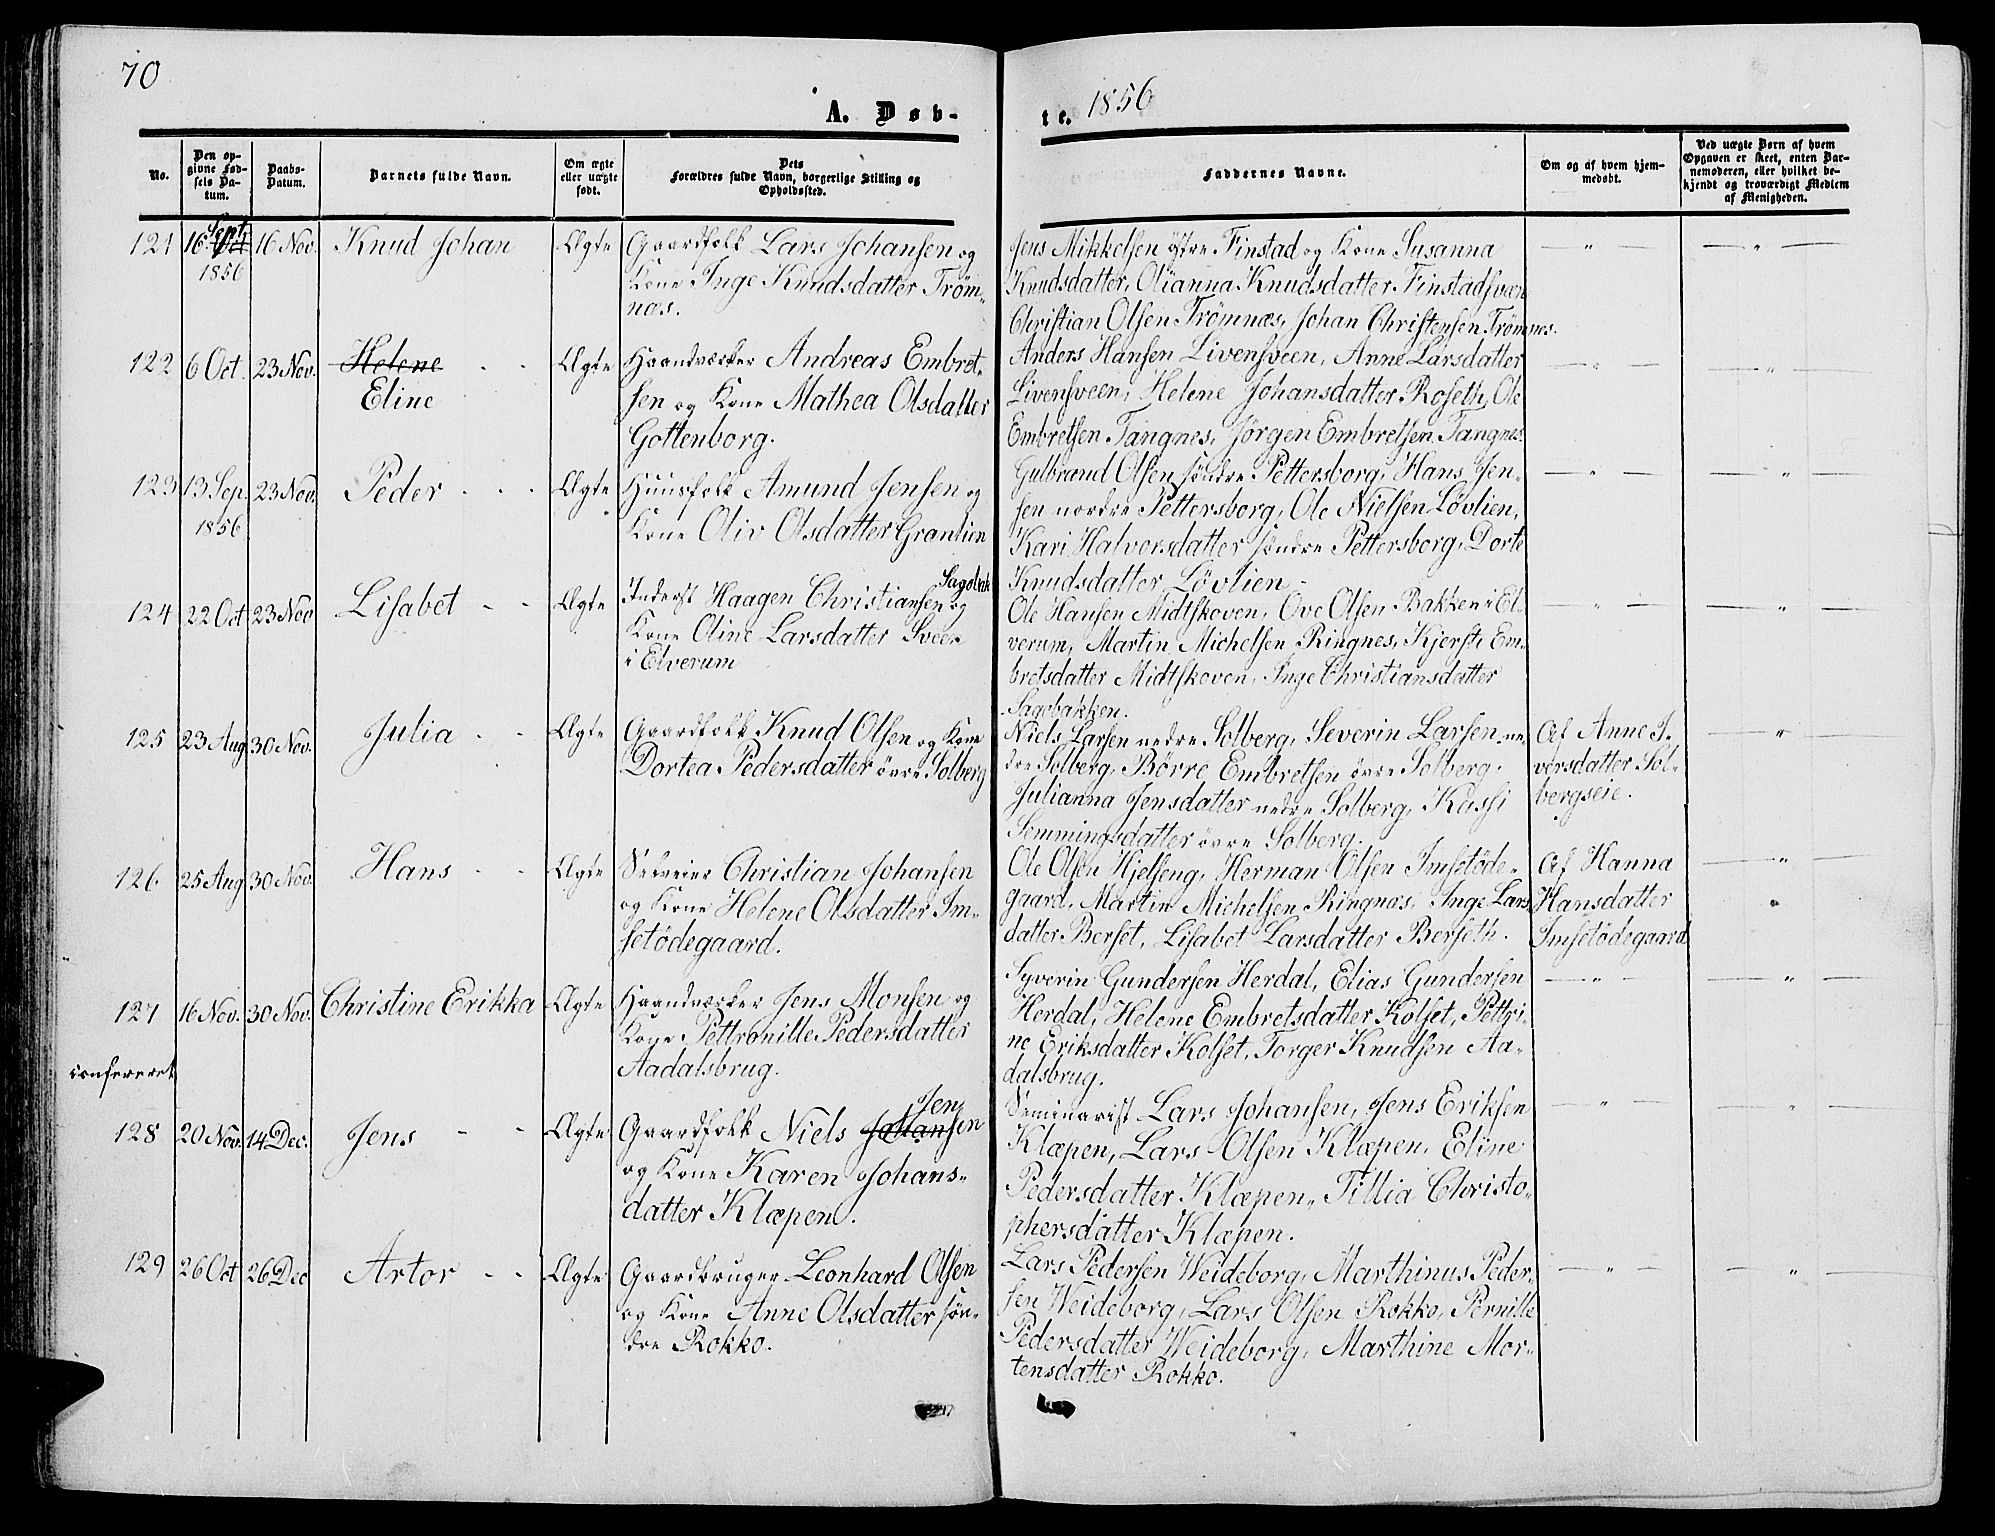 70
A. Døb-
te. 1856
No.
Den op-
givne Fød-
sels Da-
tum.
Daabs-
Datum.
Barnets fulde Navn.
Om ægte
eller uægte
født.
Dets
Forældres fulde Navn, borgerlige Stilling og
Opholdssted.
Faddernes Navne.
Om og af hvem hjem-
medøbt.
Ved uægte Børn af hvem
Opgaven er skeet, enten Bar-
nemoderen, eller hvilket be-
kjendt og troværdigt Medlem
af Menigheden.
121
16. Sept. Oct
1856
16 Nov.
Knud Johan
Ægte
Gaardfolk Lars Johansen og
Kone Inge Knudsdatter Trøm-
næs.
Jens Mikkelsen østre Finstad og Kone Susanna
Knudsdatter, Olianna Knudsdatter Finstadsveen
Christian Olsen Trømnæs, Johan Christensen Trømnæs.
— " —
— " —
122
6 Oct.
23 Nov.
Helene
Eline
Ægte
Haandværker Andreas Embret-
sen og Kone Mathea Olsdatter
Gottenborg.
Anders Hansen Livensveen, Anne Larsdatter
Livensveen, Helene Johansdatter Roseth, Ole
Embretsen Tangnes, Jørgen Embretsen Tangnes.
— " —
— " —
123
13 Sep.
1856
23 Nov.
Peder
Ægte
Huusfolk Amund Jensen og
Kone Oliv Olsdatter Grantien
Gulbrand Olsen søndre Pettersborg, Hans Jen-
sen nordre Pettersborg, Ole Nielsen Løvlien,
Kari Halvorsdatter søndre Pettersborg, Dorte
Knudsdatter Løvlien -
— " —
— " —
124
22 Oct
23 Nov
Lisabet
Ægte
Sagebak
Inderst Haagen Christiansen og
Kone Oline Larsdatter Sveen
i Elverum
Ole Hansen Midtskoven, Ove Olsen Bakken i El-
verum, Martin Michelsen Ringnes, Kjersti Em-
bretsdatter Midtskoven, Inge Christiansdatter
Sagebakken.
— " —
— " —
125
23 Aug
30 Nov.
Julia
Ægte
Gaardfolk Knud Olsen og Kone
Dortea Pedersdatter øvre Solberg
Niels Larsen nedre Solberg, Severin Larsen ne-
dre Solberg, Børre Embretsen øvre Solberg.
Julianna Jensdatter nedre Solberg, Kassi
Semmingsdatter øvre Solberg.
Af Anne I-
versdatter Sol-
bergseie.
— " —
126
25 Aug
30 Nov.
Hans
Ægte
Selveier Christian Johansen
og Kone Helene Olsdatter Im-
setødegaard.
Ole Olsen Hjelseng, Herman Olsen Imsetøde-
gaard, Martin Michelsen Ringnæs, Inge Lars
datter Berset, Lisabet Larsdatter Berseth.
Af Hanna
Hansdatter
Imsetødegaard
— " —
127
confereret
16 Nov.
30 Nov.
Christine Erikka
Ægte
Haandværker Jens Monsen og
Kone Pettronille Pedersdatter
Aadalsbrug.
Syverin Gundersen Herdal, Elias Gundersen
Herdal, Helene Embretsdatter Kolset, Pettri-
ne Eriksdatter Kolset, Torger Knudsen Aa-
dalsbrug.
— " —
— " —
128
20 Nov.
14 Dec.
Jens
Ægte
Jen
Gaardfolk Niels Johansen
og Kone Karen Johans-
datter Klæpen.
Seminarist Lars Johansen, Jens Eriksen
Klæpen, Lars Olsen Klæpen, Eline
Pedersdatter Klæpen, Tillia Christo-
phersdatter Klæpen.
— " —
— " —
129
26 Oct
26 Dec
Artor
Ægte
Gaardbruger Leonhard Olsen
og Kone Anne Olsdatter søn-
dre Rokko.
Lars Pedersen Weideborg, Marthinus Peder-
sen Weideborg, Lars Olsen Rokko, Pernille
Pedersdatter Weideborg, Marthine Mor-
tensdatter Rokko.
— " —
— " —